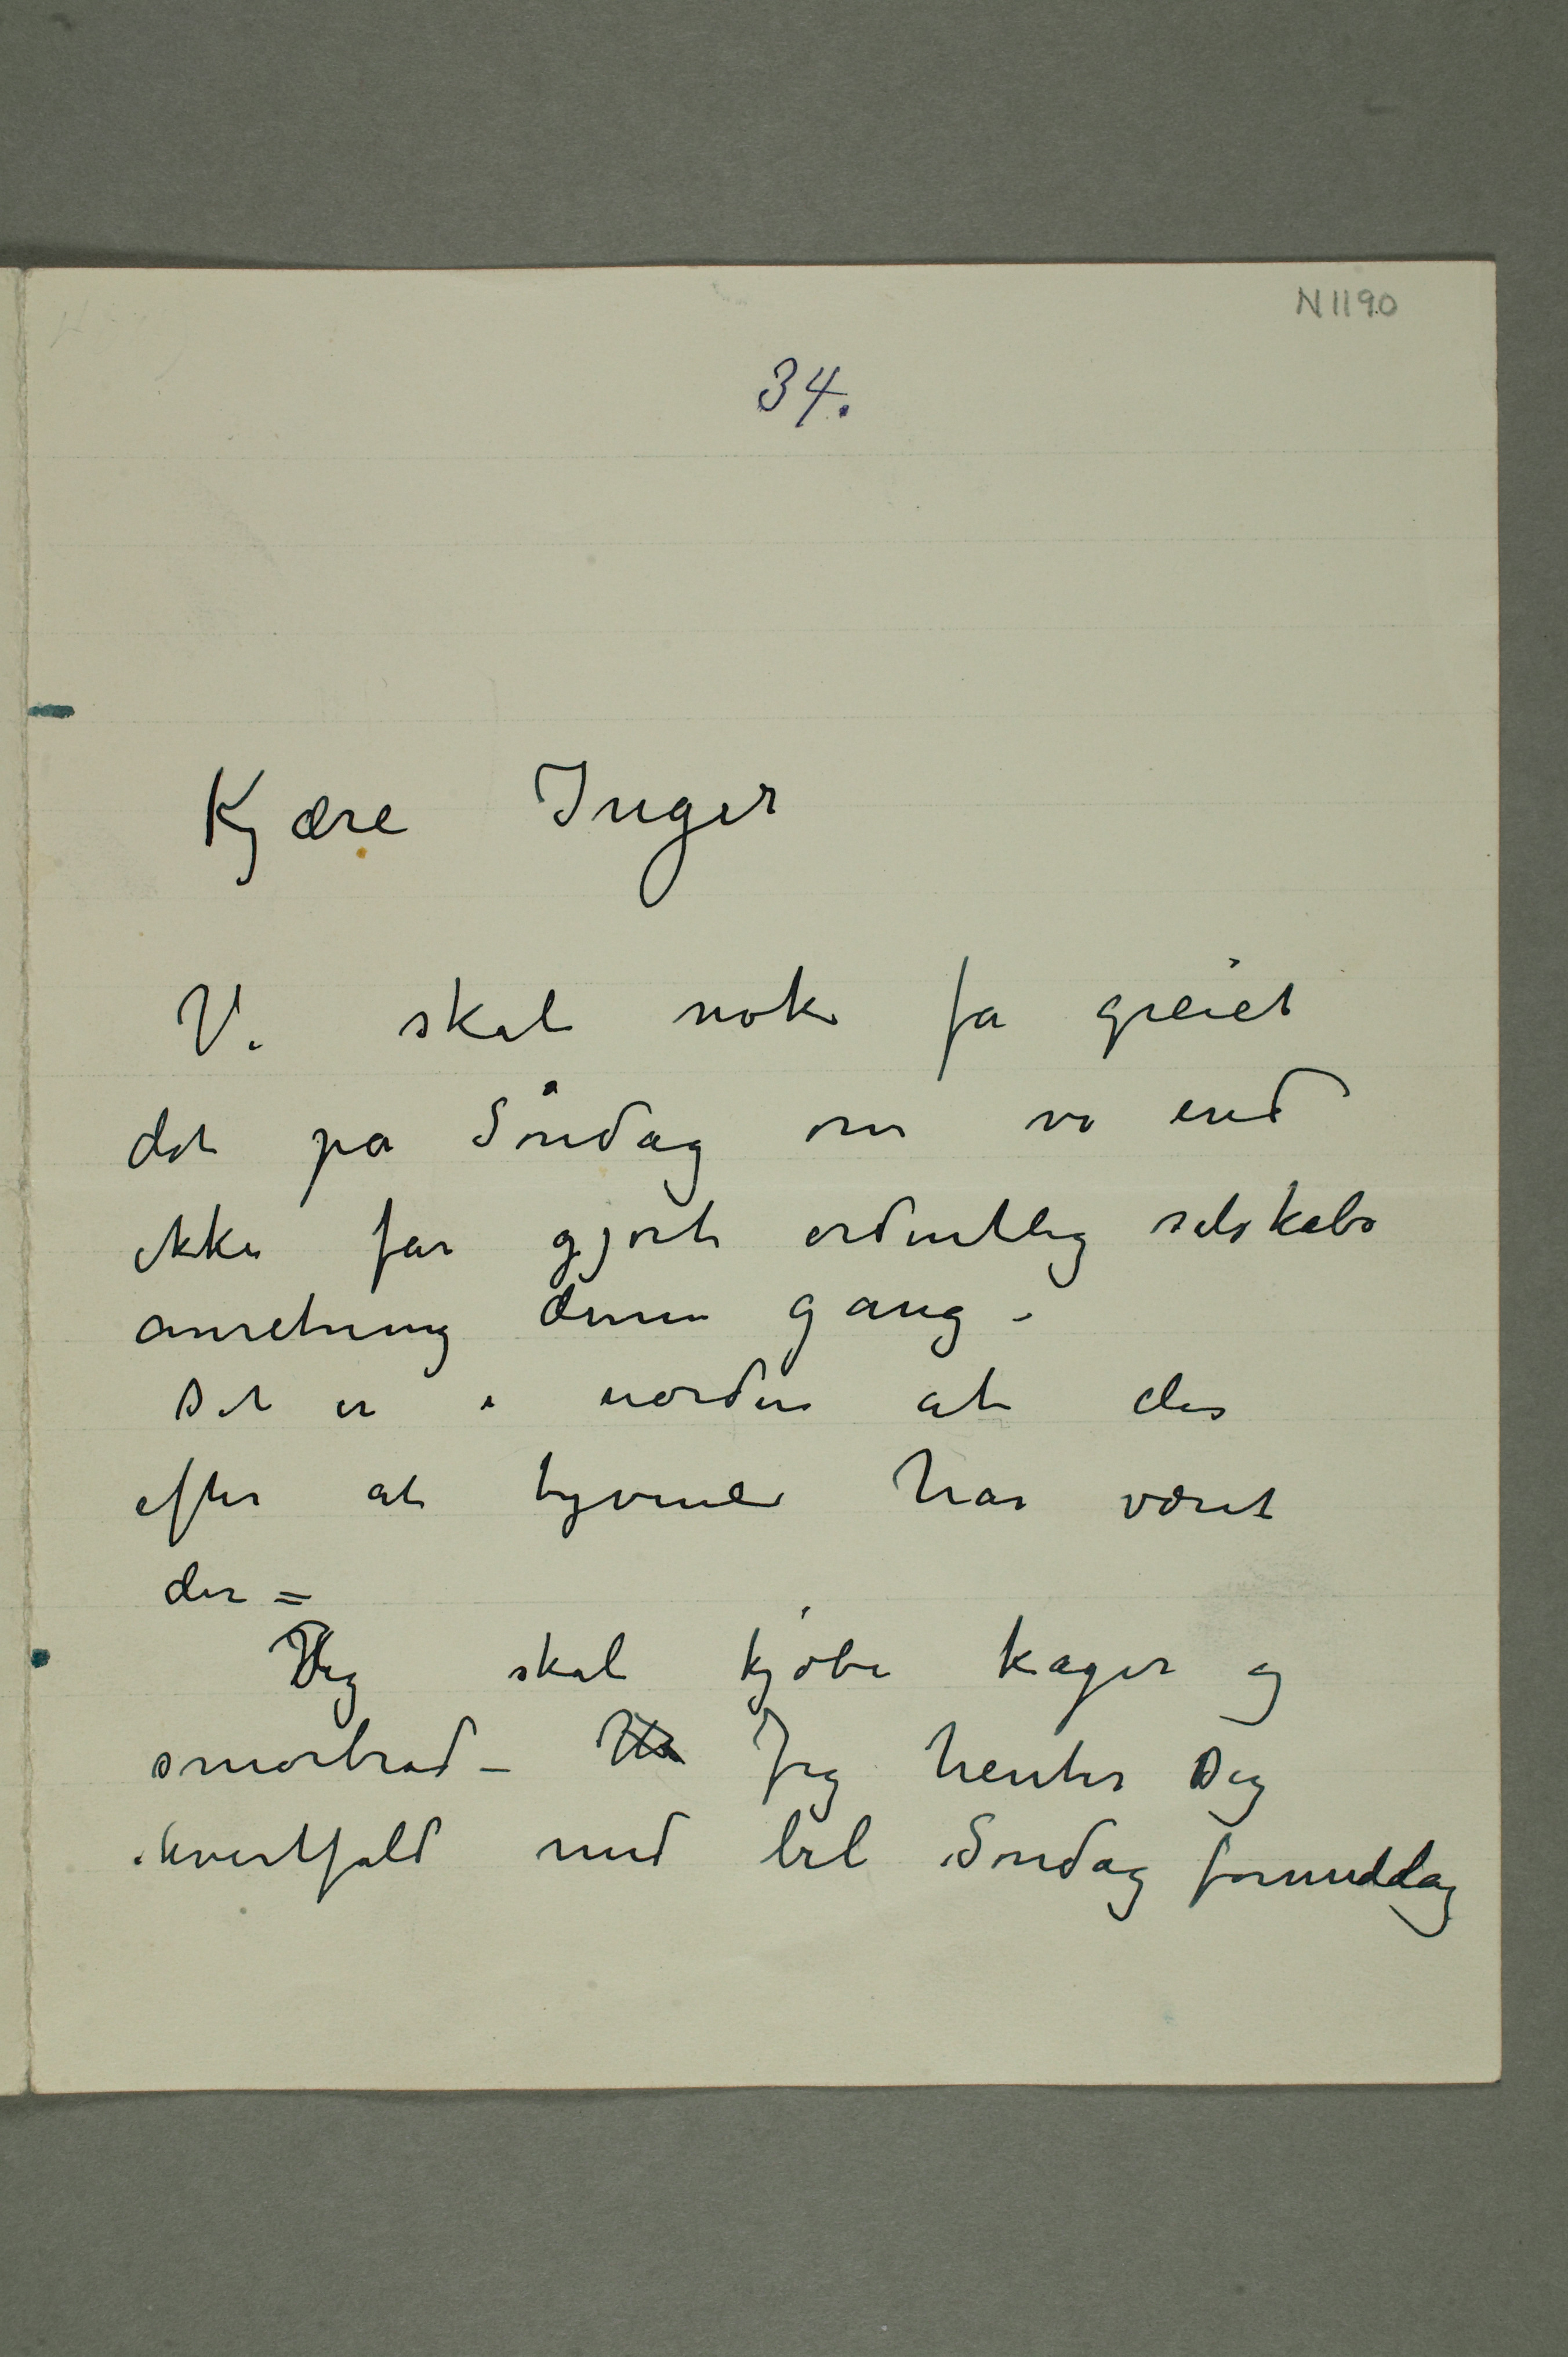 N 1190
34.
Kjære Inger
Vi skal nok få greiet
det på Søndag om vi end
ikke får gjort ordentlig selskabs
anretning denne gang –
Det er i uorden alt der
efter at tyvene har været
der =
Jeg skal kjøbe kager og
smørbrød – Jeg henter Dig
ihvertfald med bil Søndag formiddag